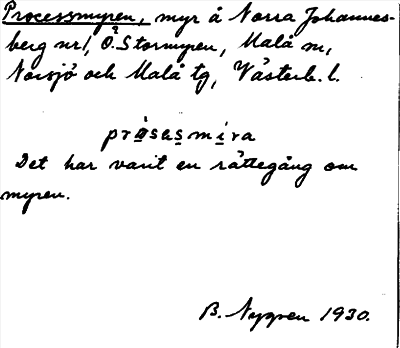 Processmyren, myr å Norra Johannes-
berg nr 1, Ö. Stormyren, Malå sn,
Norsjö och Malå tg, Västerb. l.
pråsasmira
Det har varit en rättegång om
myren.
B. Nygren 1930.